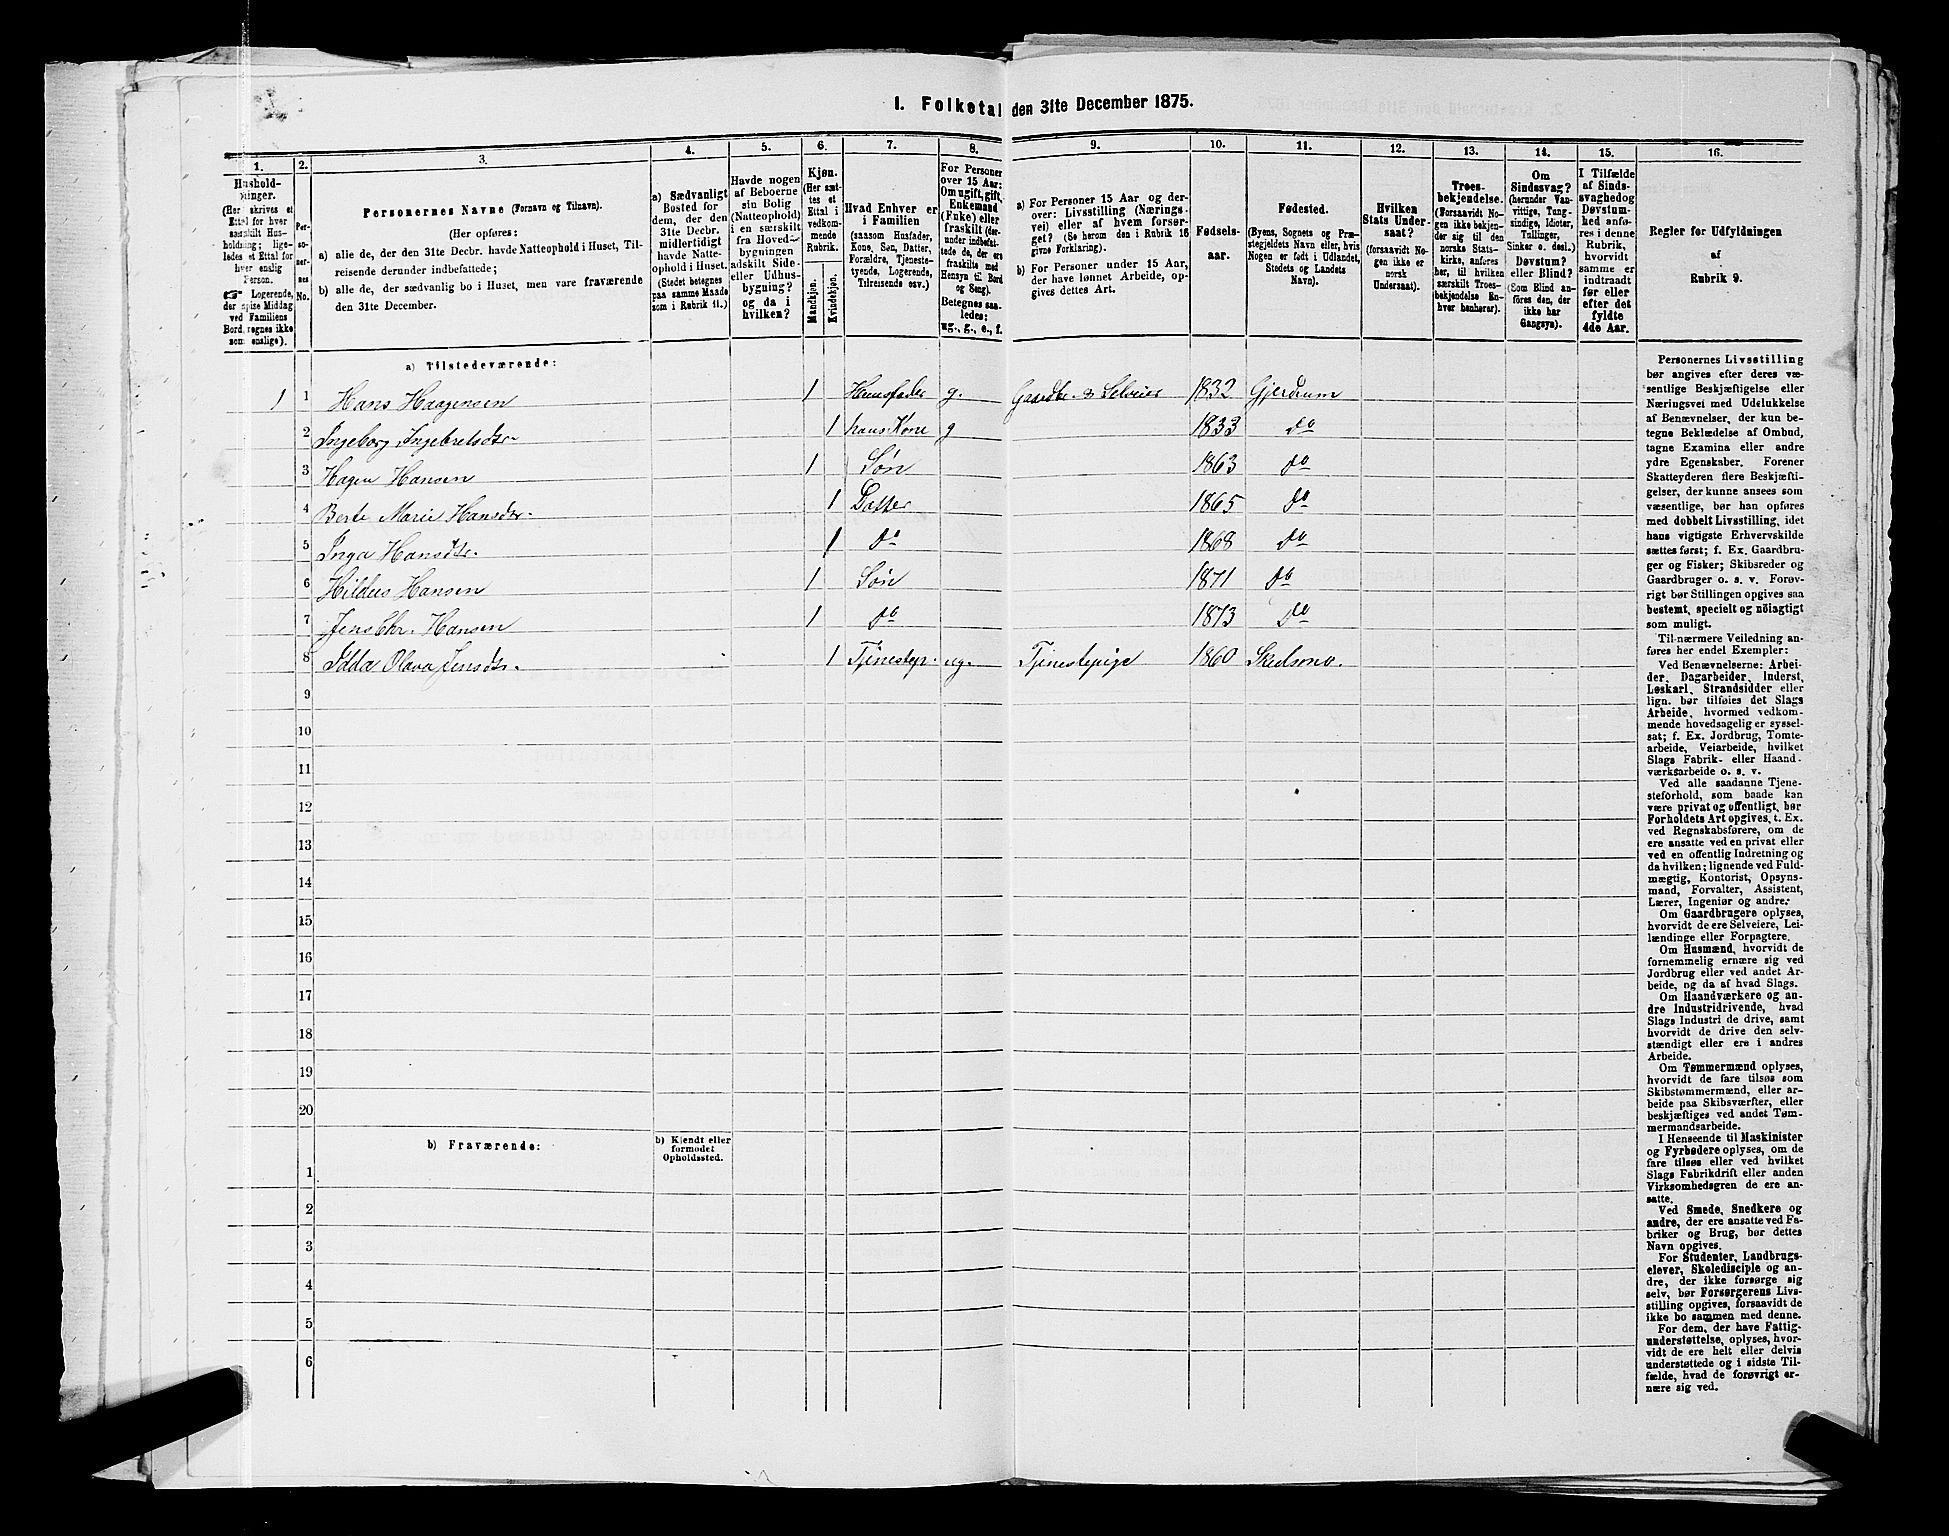 1. Folketal den 31te December 1875.
1. 2. 3. 4. 5. 6. 7. 8. 9. 10. 11. 12. 13. 14. 15. 16.
Hushold-
ninger.
(Her skrives et
Ettal for hver
særskilt Hus-
holdning; lige-
ledes et Ettal for
hver enslig
Person.
☞ Logerende,
der spise Middag
ved Familiens
Bord, regnes ikke
som enslige).
Per-
so-
ner-
nes
No.
Personernes Navne (Fornavn og Tilnavn).
(Her opføres:
a) alle de, der den 31te Decbr. havde Natteophold i Huset, Til-
reisende derunder indbefattede;
b) alle de, der sædvanlig bo i Huset, men vare fraværende
den 31te December.
a) Sædvanligt
Bosted for
dem, der den
31te Decbr.
midlertidigt
havde Natte-
ophold i Huset.
(Stedet betegnes
paa samme Maade
som i Rubrik 11.)
Havde nogen
af Beboerne
sin Bolig
(Natteophold)
i en særskilt
fra Hoved-
bygningen
adskilt Side-
eller Udhus-
bygning?
og da i
hvilken?
Kjøn.
(Her sæt-
tes et
Ettal i
vedkom-
mende
Rubrik.
Mandkjøn.
Kvindekjøn.
Hvad Enhver er
i Familien
(saasom Husfader,
Kone, Søn, Datter,
Forældre, Tjeneste-
tyende, Logerende,
Tilreisende osv.)
For Personer
over 15 Aar:
Om ugift, gift,
Enkemand
(Enke) eller
fraskilt (der-
under indbefat-
tede de, der ere
fraskilte med
Hensyn til Bord
og Seng).
Betegnes saa-
ledes:
ug., g., e., f.
a) For Personer 15 Aar og der-
over: Livsstilling (Nærings-
vei) eller af hvem forsør-
get? (Se herom den i Rubrik 16
givne Forklaring).
b) For Personer under 15 Aar,
der have lønnet Arbeide, op-
gives dettes Art.
Fødsels-
aar.
Fødested.
(Byens, Sognets og Præ-
stegjeldets Navn eller, hvis
Nogen er født i Udlandet,
Stedets og Landets
Navn).
Hvilken
Stats Under-
saat?
(forsaavidt No-
gen ikke er
norsk
Undersaat).
Troes-
bekjendelse.
(Forsaavidt No-
gen ikke bekjen-
der sig til den
norske Stats-
kirke, anføres
her, til hvilken
særskilt Troes-
bekjendelse En-
hver henhører).
Om
Sindssvag?
(herunder Van-
vittige, Tung-
sindige, Idioter,
Tullinger,
Sinker o. desl.)
Døvstum?
eller Blind?
(Som Blind an-
føres den, der
ikke har
Gangsyn).
I Tilfælde
af Sinds-
svaghed og
Døvstum-
hed anfø-
res i denne
Rubrik,
hvorvidt
samme er
indtraadt
før eller
efter det
fyldte
4de Aar.
Regler for Udfyldningen
af
Rubrik 9.
a) Tilstedeværende:
1 1 Hans Haagensen 1 Huusfader g. Gaardbr. & Selveier 1832 Gjerdrum
2 Ingeborg Ingebretsdtr 1 hans Kone g 1833 do
3 Hagen Hansen 1 Søn 1863 do
4 Berte Marie Hansdtr. 1 Datter 1865 do
5 Inga Hansdtr. 1 do 1868 do
6 Hilders Hansen 1 Søn 1871 do
7 Jens Chr. Hansen 1 do 1873 do
8 Idda Olava Jensdtr. 1 Tjenestep. ug. Tjenestepige 1860 Skedsmo.
9
10
11
12
13
14
15
16
17
18
19
20
b) Fraværende:
b) Kjendt eller
formodet
Opholdssted.
1
2
3
4
5
6
Personernes Livsstilling
bør angives efter deres væ-
sentlige Beskjæftigelse eller
Næringsvei med Udelukkelse
af Benævnelser, der kun be-
tegne Beklædelse af Ombud,
tagne Examina eller andre
ydre Egenskaber. Forener
Skatteyderen flere Beskjæfti-
gelser, der kunne ansees som
væsentlige, bør han opføres
med dobbelt Livsstilling, idet
hans vigtigste Erhvervskilde
sættes først; f. Ex. Gaardbru-
ger og Fisker; Skibsreder og
Gaardbruger o. s. v. Forøv-
rigt bør Stillingen opgives saa
bestemt, specielt og nöiagtigt
som muligt.
Til nærmere Veiledning an-
føres her endel Exempler:
Ved Benævnelserne: Arbei-
der, Dagarbeider, Inderst,
Løskarl, Strandsidder eller
lign. bør tilføies det Slags
Arbeide, hvormed vedkom-
mende hovedsagelig er syssel-
sat; f. Ex. Jordbrug, Tomte-
arbeide, Veiarbeide, hvilket
Slags Fabrik- eller Haand-
værksarbeide o. s. v.
Ved alle saadanne Tjene-
steforhold, som baade kan
være privat og offentligt, bør
Forholdets Art opgives, t. Ex.
ved Regnskabsførere, om de
ere ansatte ved en privat eller
ved en offentlig Indretning og
da hvilken; lignende ved Fuld-
mægtig, Kontorist, Opsyns-
mand, Forvalter, Assistent,
Lærer, Ingeniør og andre.
Om Gaardbrugere oplyses,
hvorvidt de ere Selveiere, Lei-
lændinge eller Forpagtere.
Om Husmænd, hvorvidt de
fornemmelig ernære sig ved
Jordbrug eller ved andet Ar-
beide, og da af hvad Slags.
Om Haandværkere og an-
dre Industridrivende, hvad
Slags Industri de drive, samt
hvorvidt de drive den selv-
stændigt eller ere i andres
Arbeide.
Om Tømmermænd oplyses,
hvorvidt de fare tilsøs som
Skibstømmermænd, eller ar-
beide paa Skibsværfter, eller
beskjæftiges ved andet Tøm-
mermandsarbeide.
I Henseende til Maskinister
og Fyrbødere oplyses, om de
fare tilsøs eller ved hvilket
Slags Fabrikdrift eller anden
Virksomhedsgren de ere an-
satte.
Ved Smede, Snedkere og
andre, der ere ansatte ved Fa-
briker og Brug, bør dettes
Navn opgives.
For Studenter, Landbrugs-
elever, Skoledisciple og an-
dre, der ikke forsørge sig
selv, bør Forsørgerens Livs-
stilling opgives, forsaavidt de
ikke bo sammen med denne.
For dem, der have Fattig-
understøttelse, oplyses, hvor-
vidt de ere helt eller delvis
understøttede og i sidste Til-
fælde, hvad de forøvrigt er-
nære sig ved.